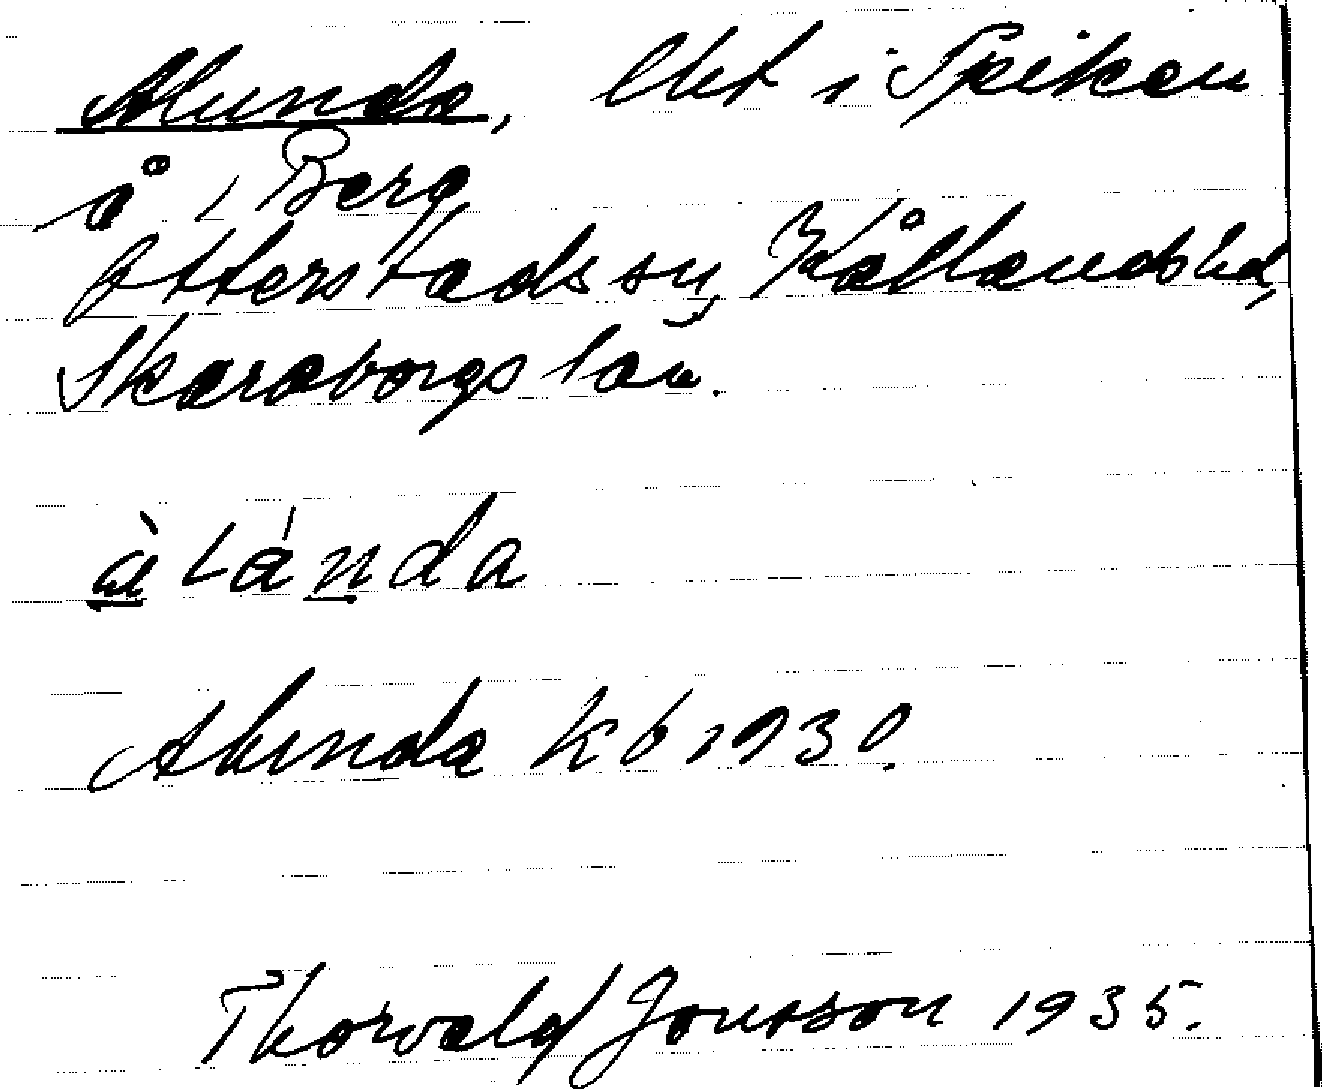 Alunda, lht i Spiken
å i Berg
Otterstads sn, Kållands hd,
Skaraborgs län.
àlánda
Alunda kb 1930.
Thorvald Jonsson 1935.